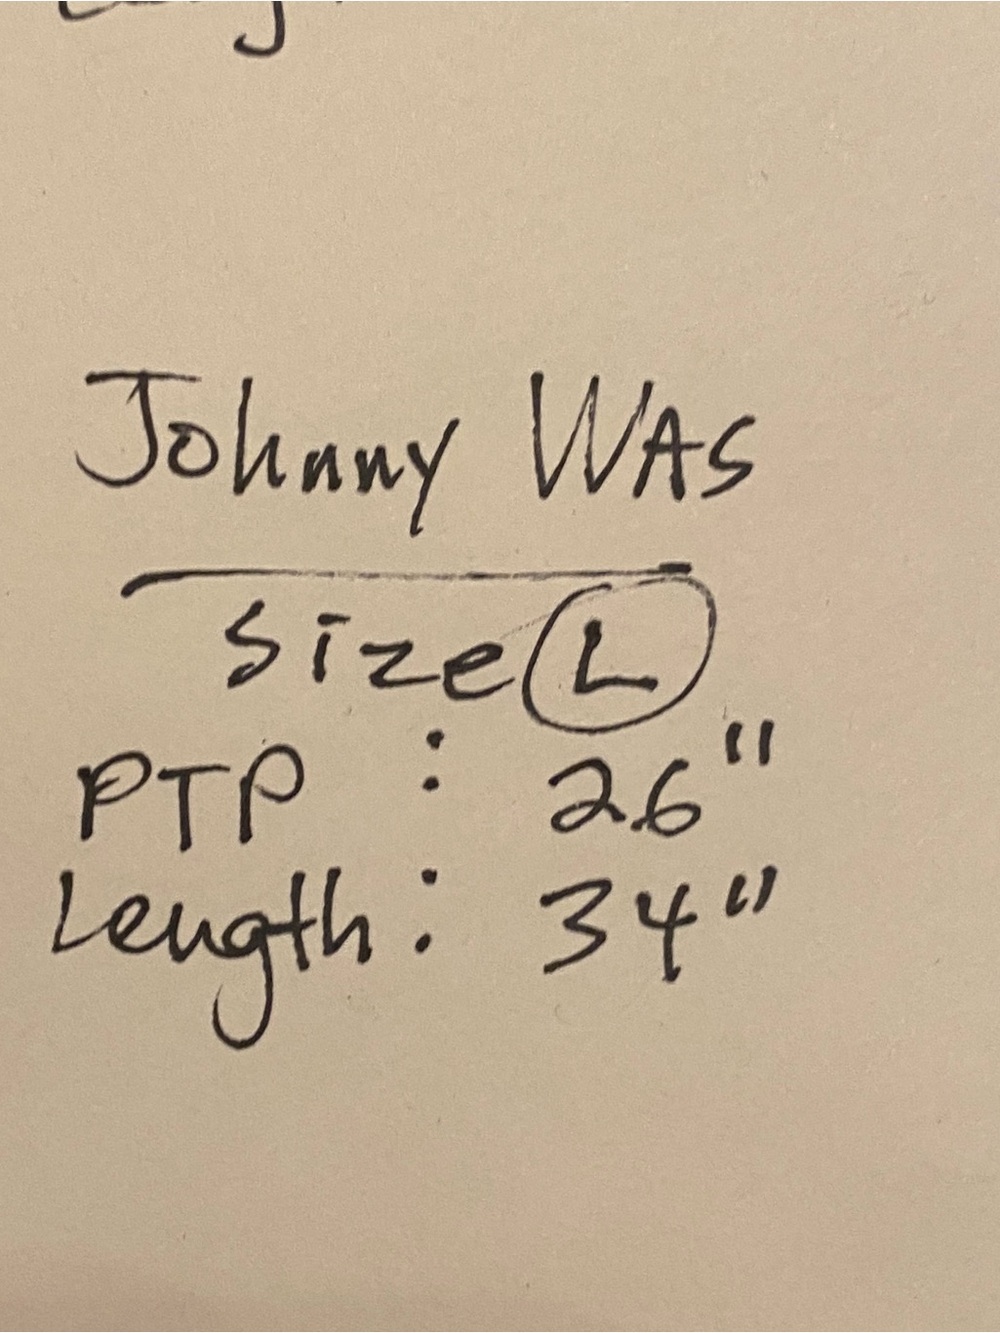 Johnny WAS
Size L
PTP : 26"
Length: 34"